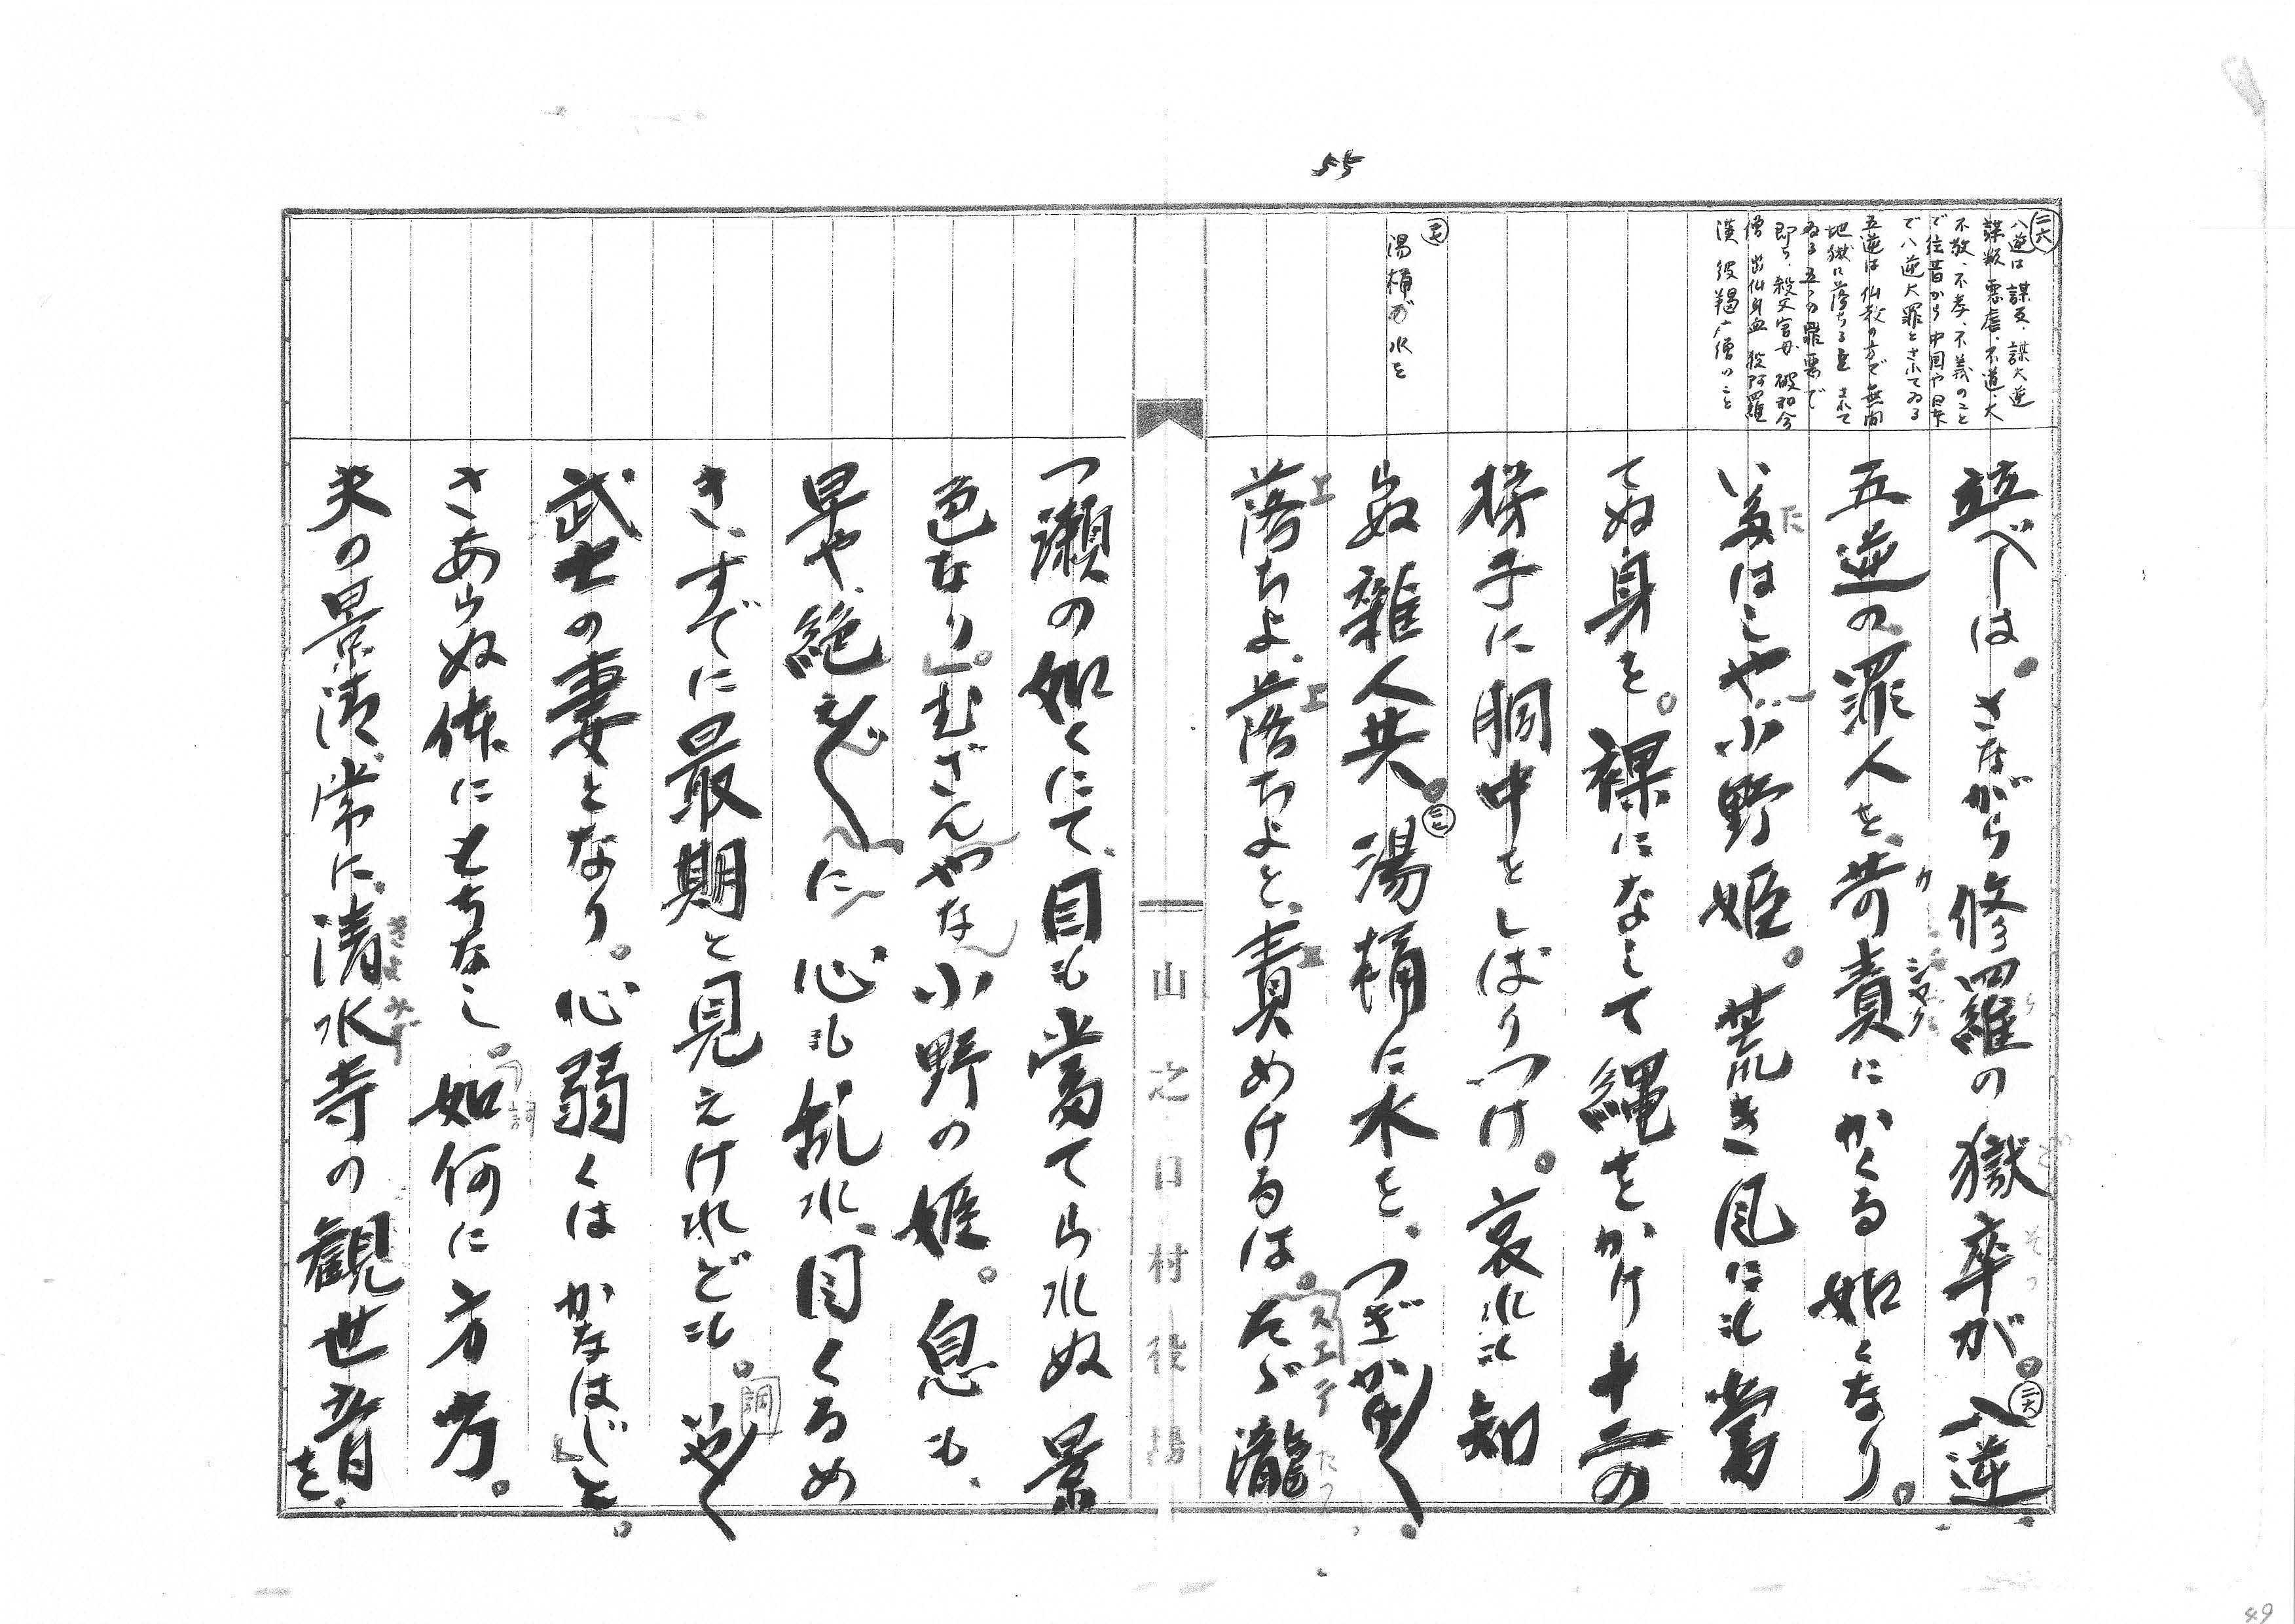 55
二六
八逆は謀反、謀大逆
謀叛、悪虐、不道、大
不敬、不孝、不義のこと
で往昔から中国や日本
で八逆大罪とされてゐる
五逆は仏教の方で無間
地獄に落ちると されて
ゐる五つの罪悪で
即ち、殺父害母 破和合
僧 出仏身血 殺阿羅
漢 のこと
湯桶が水を
竝べしは。さながら修羅の獄卒が。八逆
五逆の罪人を、苛責にかくる如くなり。
いたはしや、小野姫。荒き風にも當
てぬ身を。裸になして縄をかけ十二の
梯子に胴中をしばりつけ。哀れも知
らぬ雑人共。湯桶に水を、つぎかけ〳〵。
落ちよ、落ちよと、責めけるは。たゞ瀧
つ瀬の如くにて、目も當てられぬ景
色なり。むざんやな小野の姫。息も、
早や、絶え〴〵に、心も乱れ、目くるめ
き、すでに最期と見えけれども。いや〳〵
武士の妻となり。心弱くはかなはじと。
さあらぬ体にもちなし。如何に方々。
夫の景清、常に、清水寺の観世音を、
カシャク
ごく
そつ
スエテ
たつ
詞
詞
きよみず
山之口村役場
49